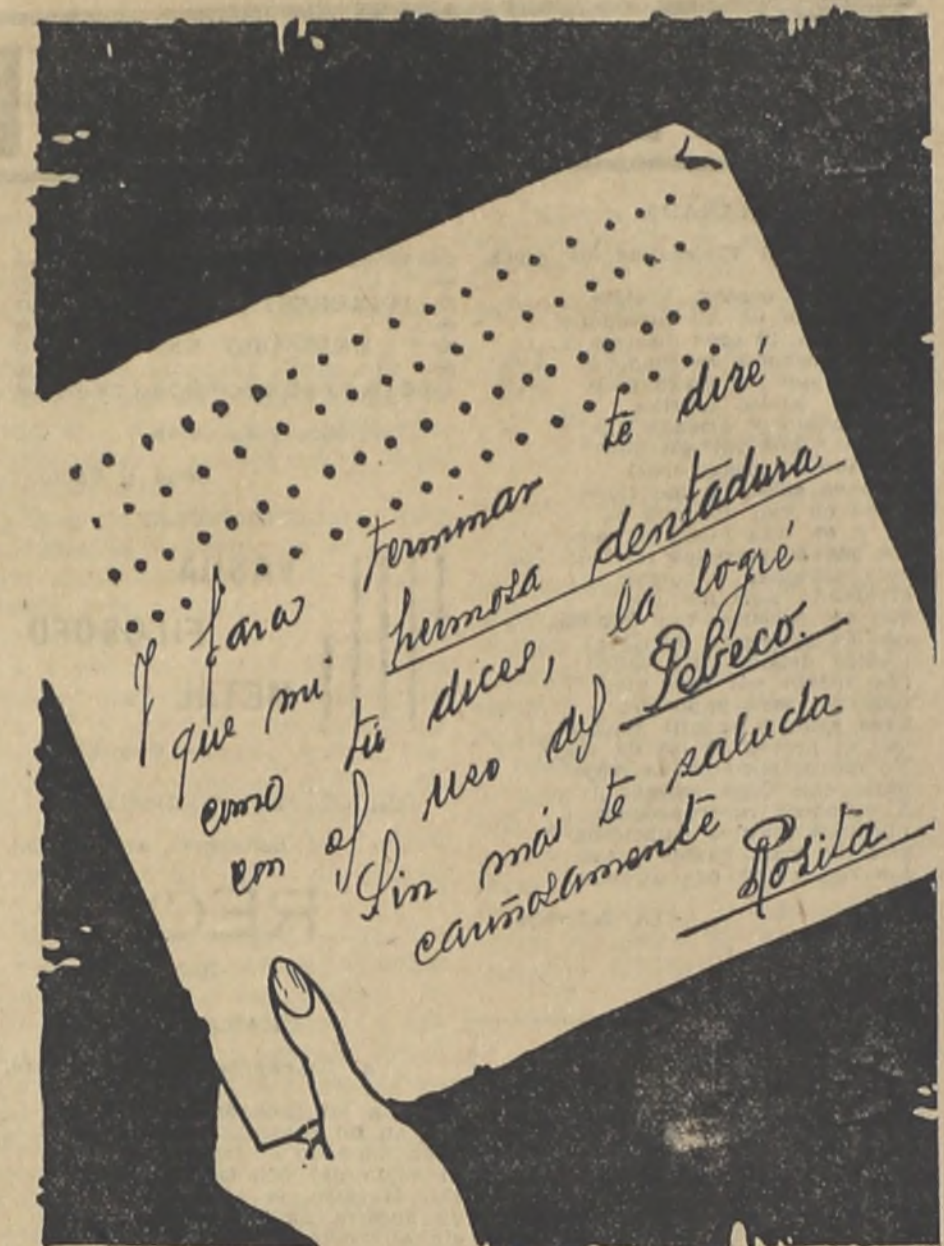 Y para terminar te diré
que mi hermosa dentadura
como tú dices, la logré
con el uso del Pebeco.
Sin más te saluda
cariñosamente
Rosita